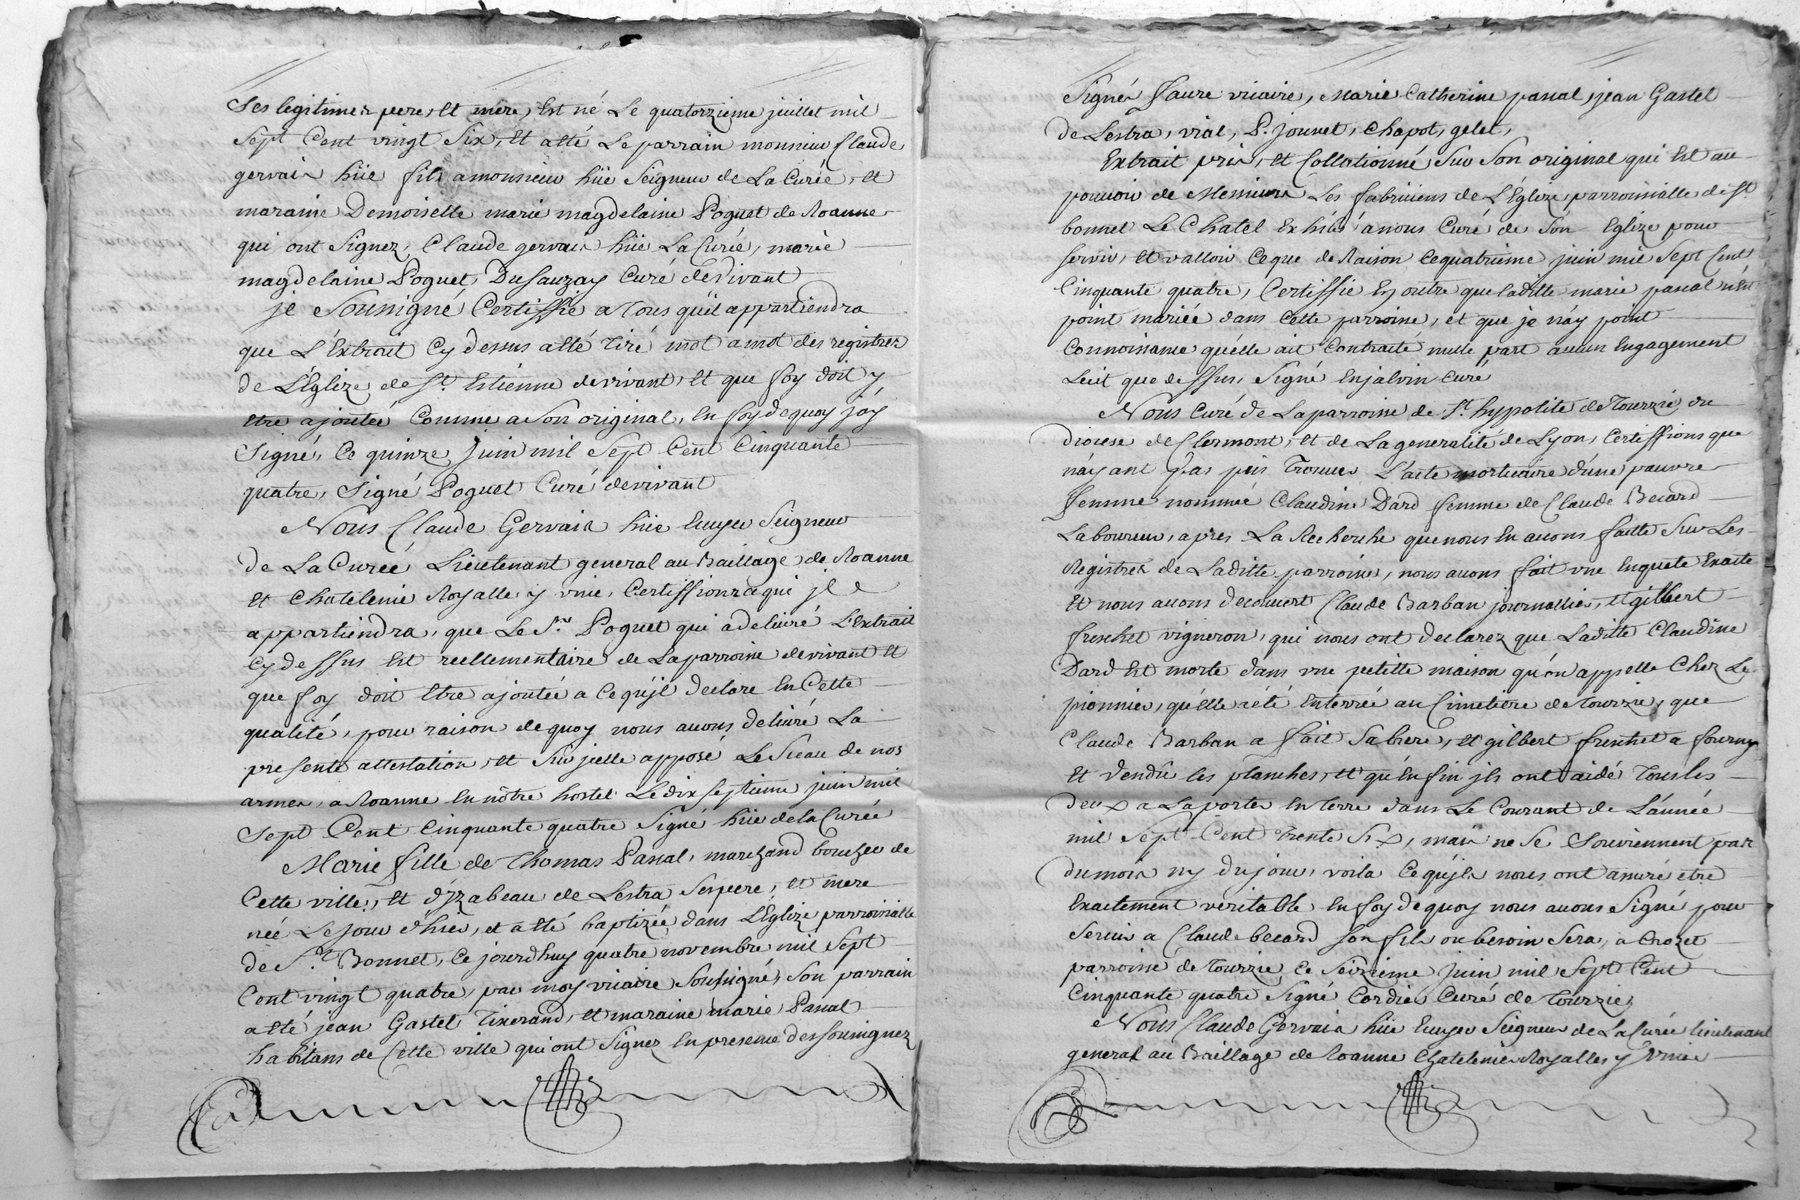 Ses legitimes pere, et mere, Est né Le quatorzieme juillet mil
Sept Cent vingt Six, Et a Eté Le parrain monsieur Claude
gervais hüe fils a monsieur hüe Seigneur de La Curée, et
maraine Demoiselle marie magdelaine Poguet de Roanne
qui ont Signez, Claude gervais hüe La Curée, marie
magdelaine Poguet, Dusauzay Curé devivant
je Soussigné Certiffie a Tous qu'il appartiendra
que L'Extrait Cy dessus a Eté Tiré mot a mot des registres
de L'Eglize de St. Estienne devivant, Et que foy doit y
Etre ajoutée Comme a Son original, En foy de quoy j'ay
Signé, Ce quinze juin mil Sept Cent Cinquante
quatre, Signé Poguet Curé devivant
Nous Claude Gervais hüe Ecuyer Seigneur
de La Curée Lieutenant general au Baillage de Roanne
Et Chatelenie Royalle y unie, Certiffions a qui jl
appartiendra, que Le Sr. Poguet qui a delivré L'Extrait
Cy dessus Est reellement Curé de La parroisse devivant Et
que foy doit Etre ajoutée a Ce qu'jl declare En Cette
qualité, pour raison de quoy nous avons delivré La
presente attestation, et Sur jcelle apposé Le Sceau de nos
armes, a Roanne En nôtre hostel Le dix Septieme juin mil
Sept Cent Cinquante quatre Signé hüe de la Curée
Marie fille de Thomas Panal, marchand boucher de
Cette ville, Et d'yzabeau de Lestra Ses pere, et mere
née Le jour d'hier, et a Eté baptizée dans L'Eglize parroissialle
de St. Bonnet, Ce jourd'huy quatre novembre mil Sept
Cent vingt quatre, par moy vicaire Soussigné, Son parrain
a Eté jean Gastel Tixerand, et maraine marie Panal
habitans de Cette ville qui ont Signez En presence des soussignez
Signés faure vicaire, Marie Catherine panal, jean Gastel
de Lestra, vial, P. jouvet, Chapot, gelet,
Extrait pris, et Collationné Sur Son original qui Est au
pouvoir de Messieurs Les fabriciens de L'Eglize parroissialle de St.
bonnet Le Chatel Exhibé a nous Curé de Son Eglize pour
servir, Et valloir Ce que de Raison Ce quatrieme juin mil Sept Cent
Cinquante quatre, Certiffie En outre que laditte marie panal n'est
point mariée dans Cette parroisse, et que je n'ay point
Connoissance qu'elle ait Contracté nulle part aucun Engagement
Ecrit que dessus, Signé Enjalvin Curé
Nous Curé de La parroisse de St. hypolite de Tourzie, du
diocese de Clermont, et de La generalité de Lyon, Certiffions que
n'ayant pas pris Trouver L'acte mortuaire d'une pauvre
femme nommée Claudine Dard femme de Claude Becard
Laboureur, apres La Recherche que nous En avons faitte Sur Les
Registres de Laditte parroisse, nous avons fait une Enquete Exacte
Et nous avons decouvert Claude Barban journallier, Et gilbert
frechet vigneron, qui nous ont declarez que Laditte Claudine
Dard Est morte dans une petitte maison qu'on appelle Chez Le
pionnier, qu'Elle a été Enterrée au Cimetiere de Tourzie, que
Claude Barban a fait Sa biere, et gilbert frechet a fourny
Et vendu les planches, Et qu'Enfin jls ont aidé Tous les
deux a La porter En terre dans Le Courant de L'année
mil Sept Cent Trente Six, mais ne Se Souviennent pas
du mois ny du jour, voila Ce qu'jls nous ont assuré etre
Exactement veritable En foy de quoy nous avons Signé pour
Servir a Claude becard Son fils ou besoin Sera, a Crozet
parroisse de Tourzie Ce Seizieme juin mil Sept Cent
Cinquante quatre Signé Cordier Curé de Tourzie,
Nous Claude Gervais hüe Ecuyer Seigneur de La Curée Lieutenant
general au Baillage de Roanne Chatelenies Royalles y Unies